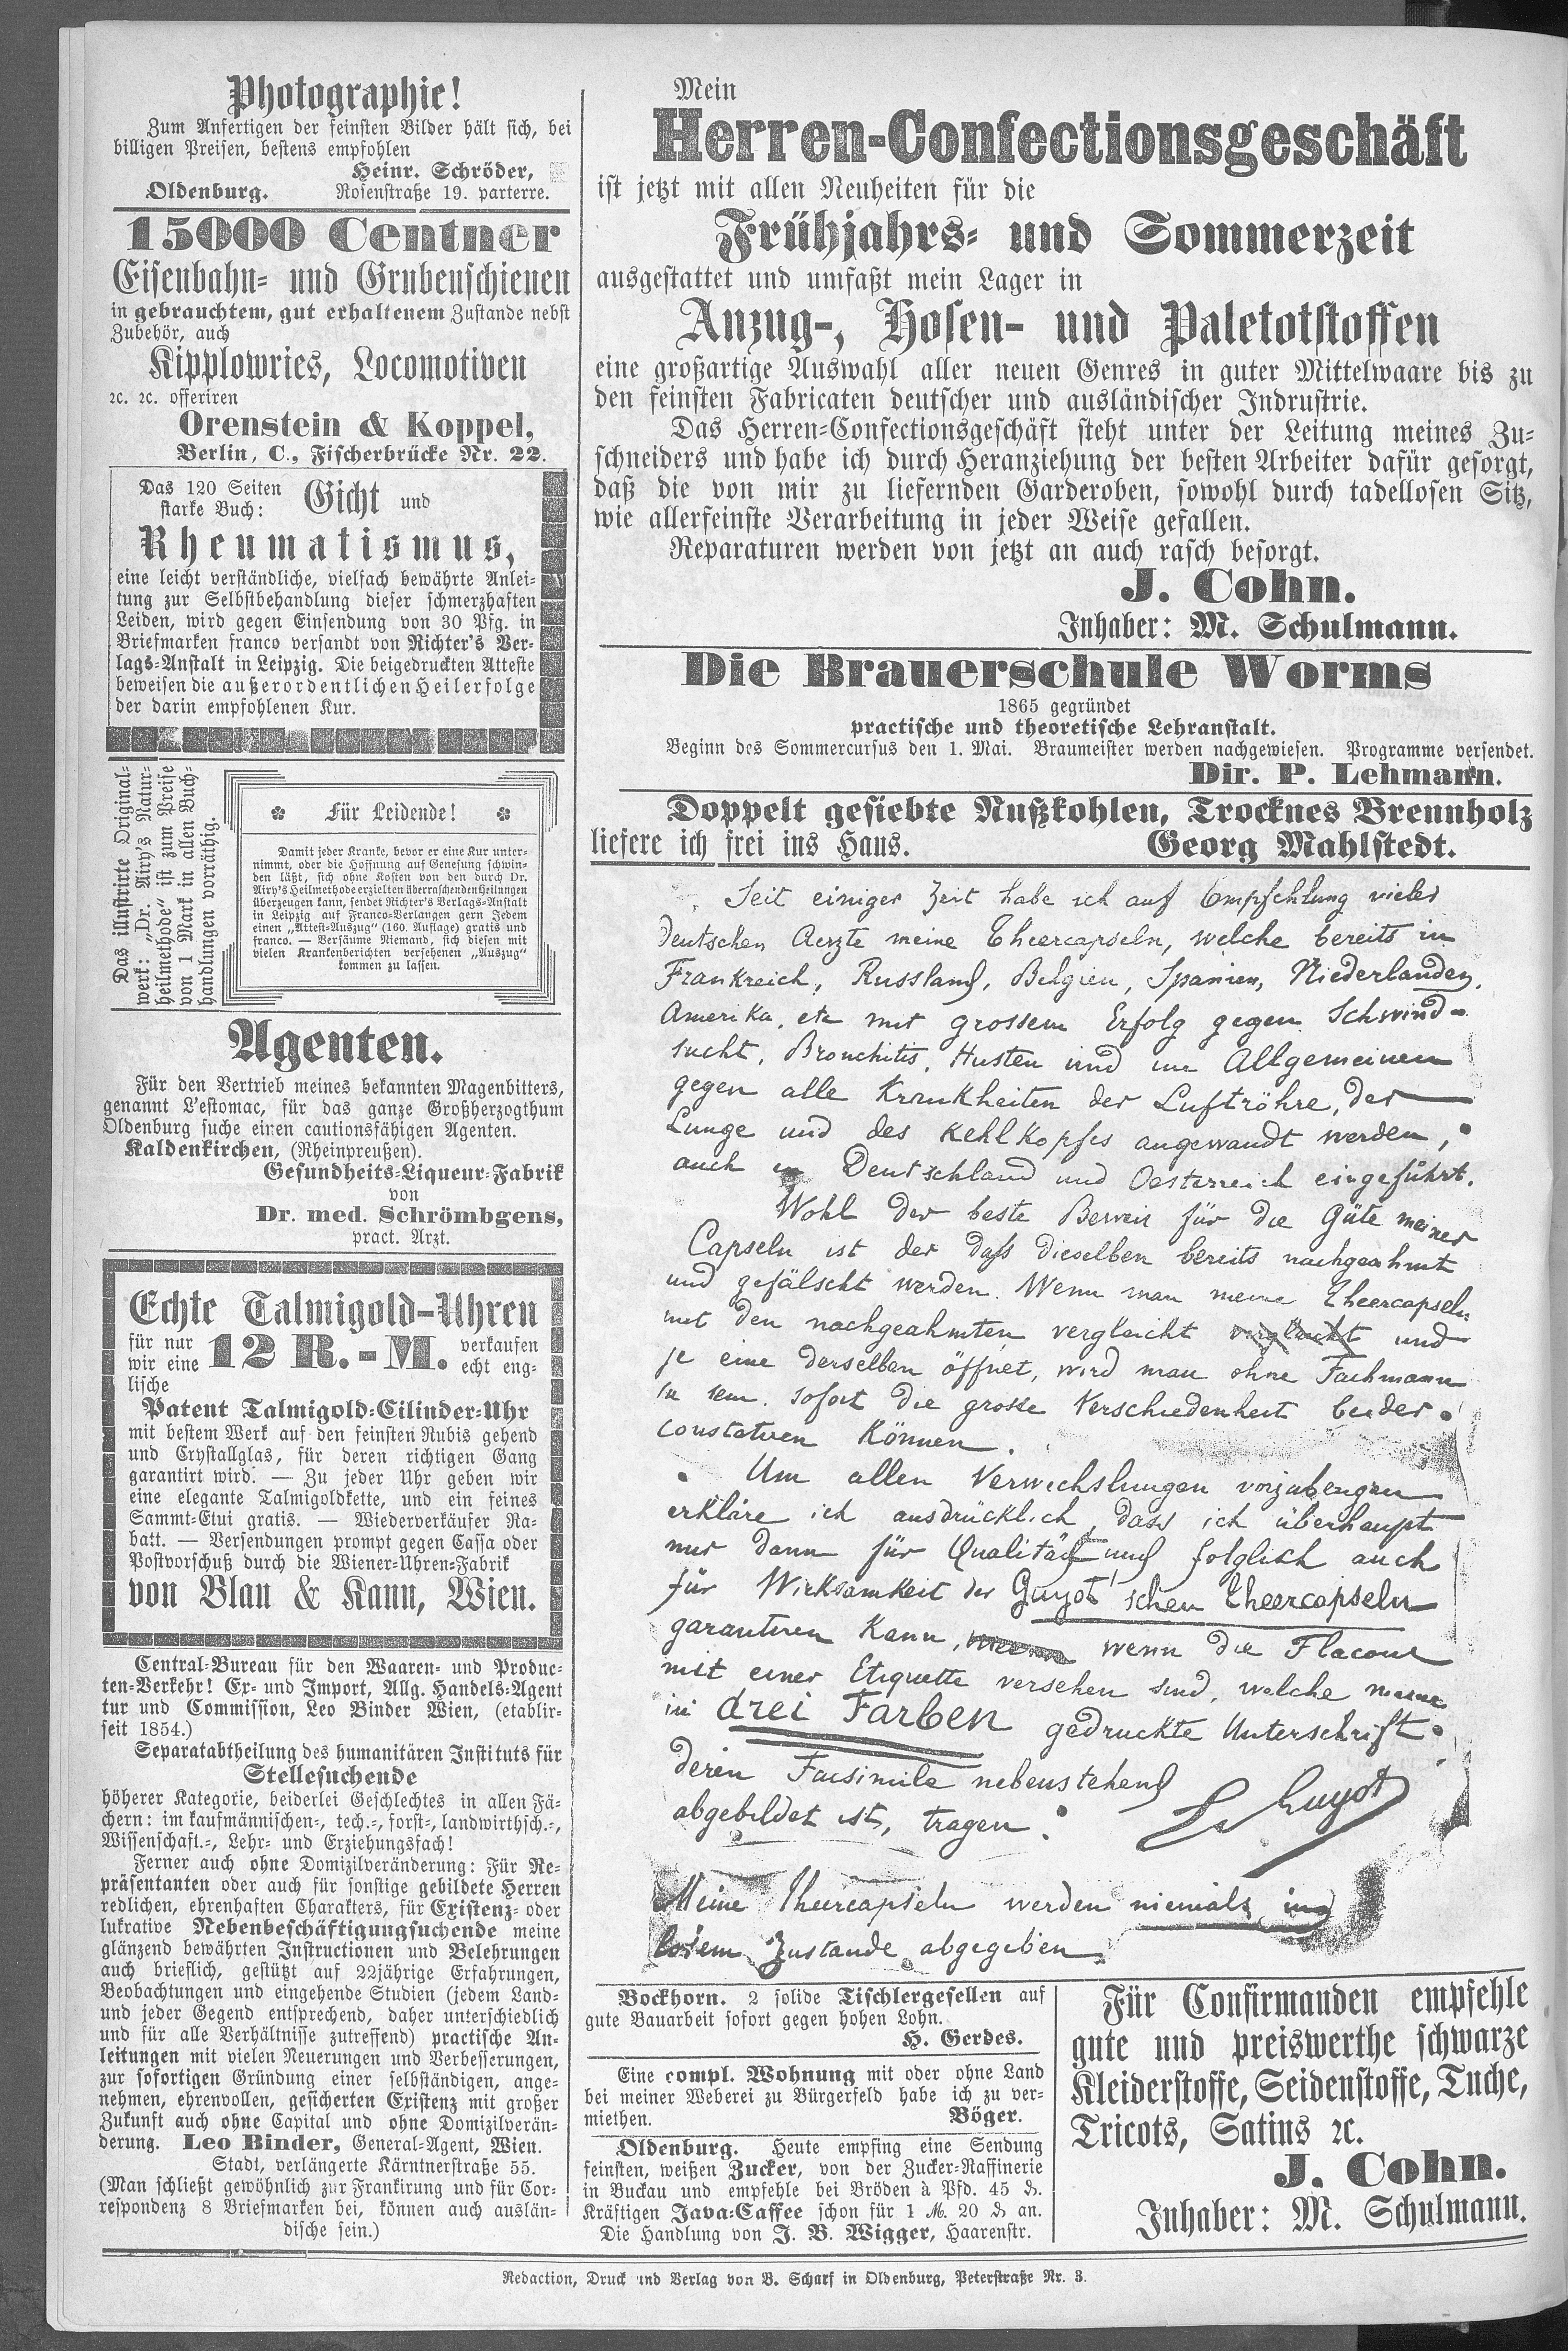 Photographie!
Zum Anfertigen der feinsten Bilder hält sich, bei
billigen Preisen, bestens empfohlen
Heinr. Schröder,
Oldenburg. Rosenstraße 19. parterre.
15000 Centner
Eisenbahn- und Grubenschienen
in gebrauchtem, gut erhaltenem Zustande nebst
Zubehör, auch
Kipplowries, Locomotiven
ꝛc. ꝛc. offeriren
Orenstein & Koppel,
Berlin, C., Fischerbrücke Nr. 22.
Das 120 Seiten
starke Buch: Gicht und
Rheumatismus,
eine leicht verständliche, vielfach bewährte Anlei-
tung zur Selbstbehandlung dieser schmerzhaften
Leiden, wird gegen Einsendung von 30 Pfg. in
Briefmarken franco versandt von Richter's Ver-
lags-Anstalt in Leipzig. Die beigedruckten Atteste
beweisen die außerordentlichen Heilerfolge
der darin empfohlenen Kur.
Das illustrirte Original-
werk: „Dr. Airy's Natur-
heilmethode" ist zum Preise
von 1 Mark in allen Buch-
handlungen vorräthig.
Für Leidende!
Damit jeder Kranke, bevor er eine Kur unter-
nimmt, oder die Hoffnung auf Genesung schwin-
den läßt, sich ohne Kosten von den durch Dr.
Airy's Heilmethode erzielten überraschenden Heilungen
überzeugen kann, sendet Richter's Verlags-Anstalt
in Leipzig auf Franco-Verlangen gern Jedem
einen „Attest-Auszug" (160. Auflage) gratis und
franco. — Versäume Niemand, sich diesen mit
vielen Krankenberichten versehenen „Auszug"
kommen zu lassen.
Agenten.
Für den Vertrieb meines bekannten Magenbitters,
genannt L'estomac, für das ganze Großherzogthum
Oldenburg suche einen cautionsfähigen Agenten.
Kaldenkirchen, (Rheinpreußen).
Gesundheits-Liqueur-Fabrik
von
Dr. med. Schrömbgens,
pract. Arzt.
Echte Talmigold-Uhren
für nur 12 R.-M. verkaufen
wir eine echt eng-
lische
Patent Talmigold-Cilinder-Uhr
mit bestem Werk auf den feinsten Rubis gehend
und Crystallglas, für deren richtigen Gang
garantirt wird. — Zu jeder Uhr geben wir
eine elegante Talmigoldkette, und ein feines
Sammt-Etui gratis. — Wiederverkäufer Ra-
batt. — Versendungen prompt gegen Cassa oder
Postvorschuß durch die Wiener-Uhren-Fabrik
von Blau & Kann, Wien.
Central-Bureau für den Waaren- und Produc-
ten-Verkehr! Ex- und Import, Allg. Handels-Agent
tur und Commission, Leo Binder Wien, (etablir-
seit 1854.)
Separatabtheilung des humanitären Instituts für
Stellesuchende
höherer Kategorie, beiderlei Geschlechtes in allen Fä-
chern: im kaufmännischen-, tech.-, forst-, landwirthsch.-,
Wissenschaft.-, Lehr- und Erziehungsfach!
Ferner auch ohne Domizilveränderung: Für Re-
präsentanten oder auch für sonstige gebildete Herren
redlichen, ehrenhaften Charakters, für Existenz- oder
lukrative Nebenbeschäftigungsuchende meine
glänzend bewährten Instructionen und Belehrungen
auch brieflich, gestützt auf 22jährige Erfahrungen,
Beobachtungen und eingehende Studien (jedem Land-
und jeder Gegend entsprechend, daher unterschiedlich
und für alle Verhältnisse zutreffend) practische An-
leitungen mit vielen Neuerungen und Verbesserungen,
zur sofortigen Gründung einer selbständigen, ange-
nehmen, ehrenvollen, gesicherten Existenz mit großer
Zukunft auch ohne Capital und ohne Domizilverän-
derung. Leo Binder, General-Agent, Wien.
Stadt, verlängerte Kärntnerstraße 55.
(Man schließt gewöhnlich zur Frankirung und für Cor-
respondenz 8 Briefmarken bei, können auch auslän-
dische sein.)
Mein
Herren-Confectionsgeschäft
ist jetzt mit allen Neuheiten für die
Frühjahrs- und Sommerzeit
ausgestattet und umfaßt mein Lager in
Anzug-, Hosen- und Paletotstoffen
eine großartige Auswahl aller neuen Genres in guter Mittelwaare bis zu
den feinsten Fabricaten deutscher und ausländischer Indrustrie.
Das Herren-Confectionsgeschäft steht unter der Leitung meines Zu-
schneiders und habe ich durch Heranziehung der besten Arbeiter dafür gesorgt,
daß die von mir zu liefernden Garderoben, sowohl durch tadellosen Sitz,
wie allerfeinste Verarbeitung in jeder Weise gefallen.
Reparaturen werden von jetzt an auch rasch besorgt.
J. Cohn.
Inhaber: M. Schulmann.
Die Brauerschule Worms
1865 gegründet
practische und theoretische Lehranstalt.
Beginn des Sommercursus den 1. Mai. Braumeister werden nachgewiesen. Programme versendet.
Dir. P. Lehmann.
Doppelt gesiebte Nußkohlen, Trocknes Brennholz
liefere ich frei ins Haus. Georg Mahlstedt.
Seit einiger Zeit habe ich auf Empfehlung vieler
deutschen Aerzte meine Theercapseln, welche bereits in
Frankreich, Russland, Belgien, Spanien, Niederlanden,
Amerika, etc mit grossem Erfolg gegen Schwind-
sucht, Bronchitis, Husten und im Allgemeinen
gegen alle Krankheiten der Luftröhre, der
Lunge und des Kehlkopfes angewandt werden,
auch in Deutschland und Oesterreich eingeführt.
Wohl der beste Beweis für die Güte meiner
Capseln ist der daß dieselben bereits nachgeahmt
und gefälscht werden. Wenn man meine Theercapseln
mit den nachgeahmten vergleicht vergleicht und
je eine derselben öffnet, wird man ohne Fachmann
zu sein sofort die grosse Verschiedenheit beider
constatiren können.
Um allen Verwechslungen vorzubeugen
erkläre ich ausdrücklich, dass ich überhaupt
nur dann für Qualität und folglich auch
für Wirksamkeit der Guyot'schen Theercapseln
garantiren kann, wenn die Flacons
mit einer Etiquette versehen sind, welche meine
in drei Farben gedruckte Unterschrift
deren Facsimile nebenstehend
abgebildet ist, tragen. Guyot
Meine Theercapseln werden niemals im
losem Zustande abgegeben
Bockhorn. 2 solide Tischlergesellen auf
gute Bauarbeit sofort gegen hohen Lohn.
H. Gerdes.
Eine compl. Wohnung mit oder ohne Land
bei meiner Weberei zu Bürgerfeld habe ich zu ver-
miethen. Böger.
Oldenburg. Heute empfing eine Sendung
feinsten, weißen Zucker, von der Zucker-Raffinerie
in Buckau und empfehle bei Bröden à Pfd. 45 ₰.
Kräftigen Java-Caffee schon für 1 M. 20 ₰ an.
Die Handlung von J. B. Wigger, Haarenstr.
Für Confirmanden empfehle
gute und preiswerthe schwarze
Kleiderstoffe, Seidenstoffe, Tuche,
Tricots, Satins ꝛc.
J. Cohn.
Inhaber: M. Schulmann.
Redaction, Druck und Verlag von B. Scharf in Oldenburg, Peterstraße Nr. 3.